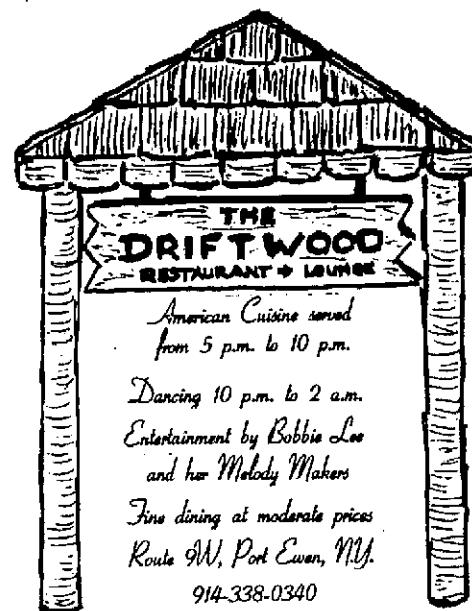 THE
DRIFTWOOD
RESTAURANT + LOUNGE
American Cuisine served
from 5 p.m. to 10 p.m.
Dancing 10 p.m. to 2 a.m.
Entertainment by Bobbie Lee
and her Melody Makers
Fine dining at moderate prices
Route 9W, Port Ewen, N.Y.
914-338-0340